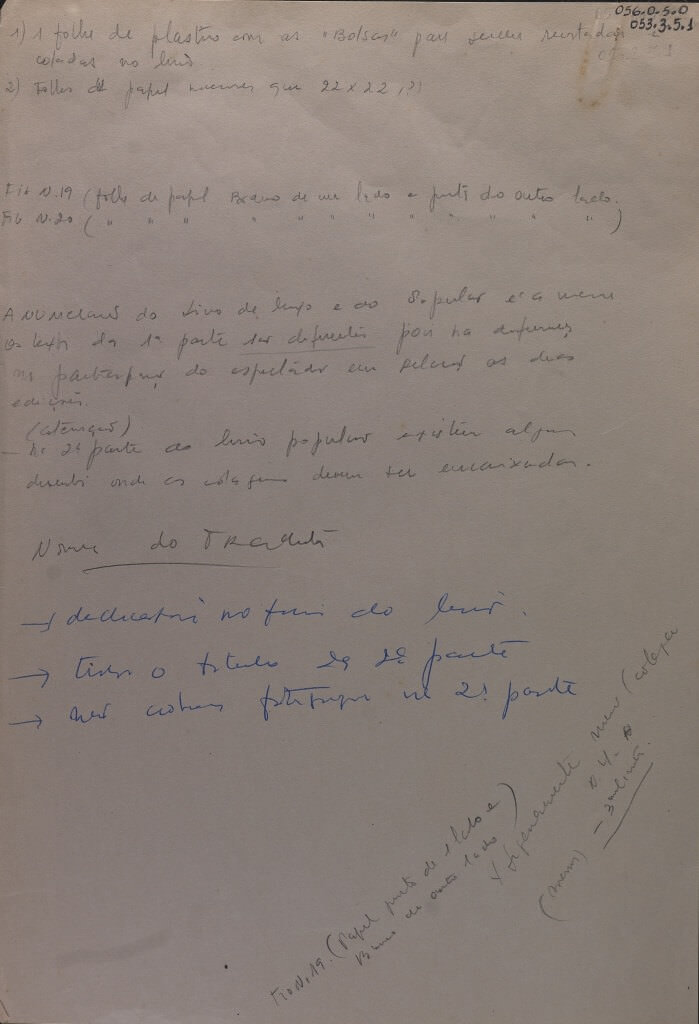 056.0.5.0
053.3.5.1
1) 1 folha de plastico com as "Bolsas" para serem recortadas e
coladas no livro
2) Folhas de papel menores que 22 x 22 (?)
Fig N.19 (folha de papel Branco de um lado e preto do outro lado.
Fig N.20 ( " " " " " " " " " " " " )
A numeração do livro de luxo e do popular é a mesma
os textos da 1ª parte são diferentes pois na
participação do espectador em relação as duas
edições.
(atenção)
— Na 2ª parte do livro popular existem alguns
desenhos onde as colagens devem ser encaixadas.
Nome do Tradutor
→ dedicatoria no fim do livro.
→ tirar o titulo da 2ª parte
→ na 2ª parte
Fig N.19. (Papel preto de 1 lado e
Branco do outro lado)
X ligeiramente menor (colagem
(menos) — 3 milimetros.